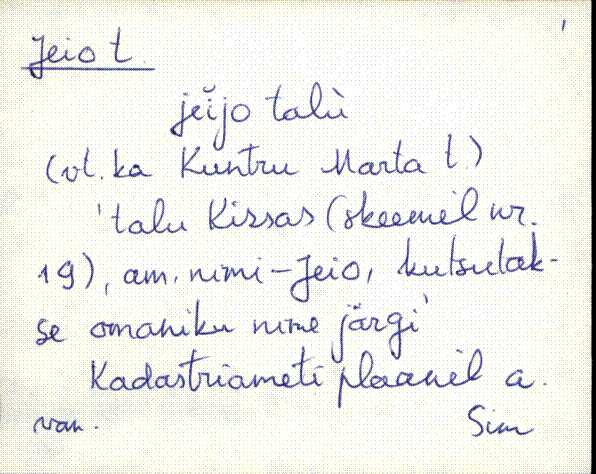 Jeio t.
jeĭjo talù
(vt. ka Kuntru Marta t.)
'talu Kissas (skeemil nr.
19), am. nimi - Jeio, kutsutak-
se omaniku nime järgi'
Kadastriameti plaanil a.
van. Sim